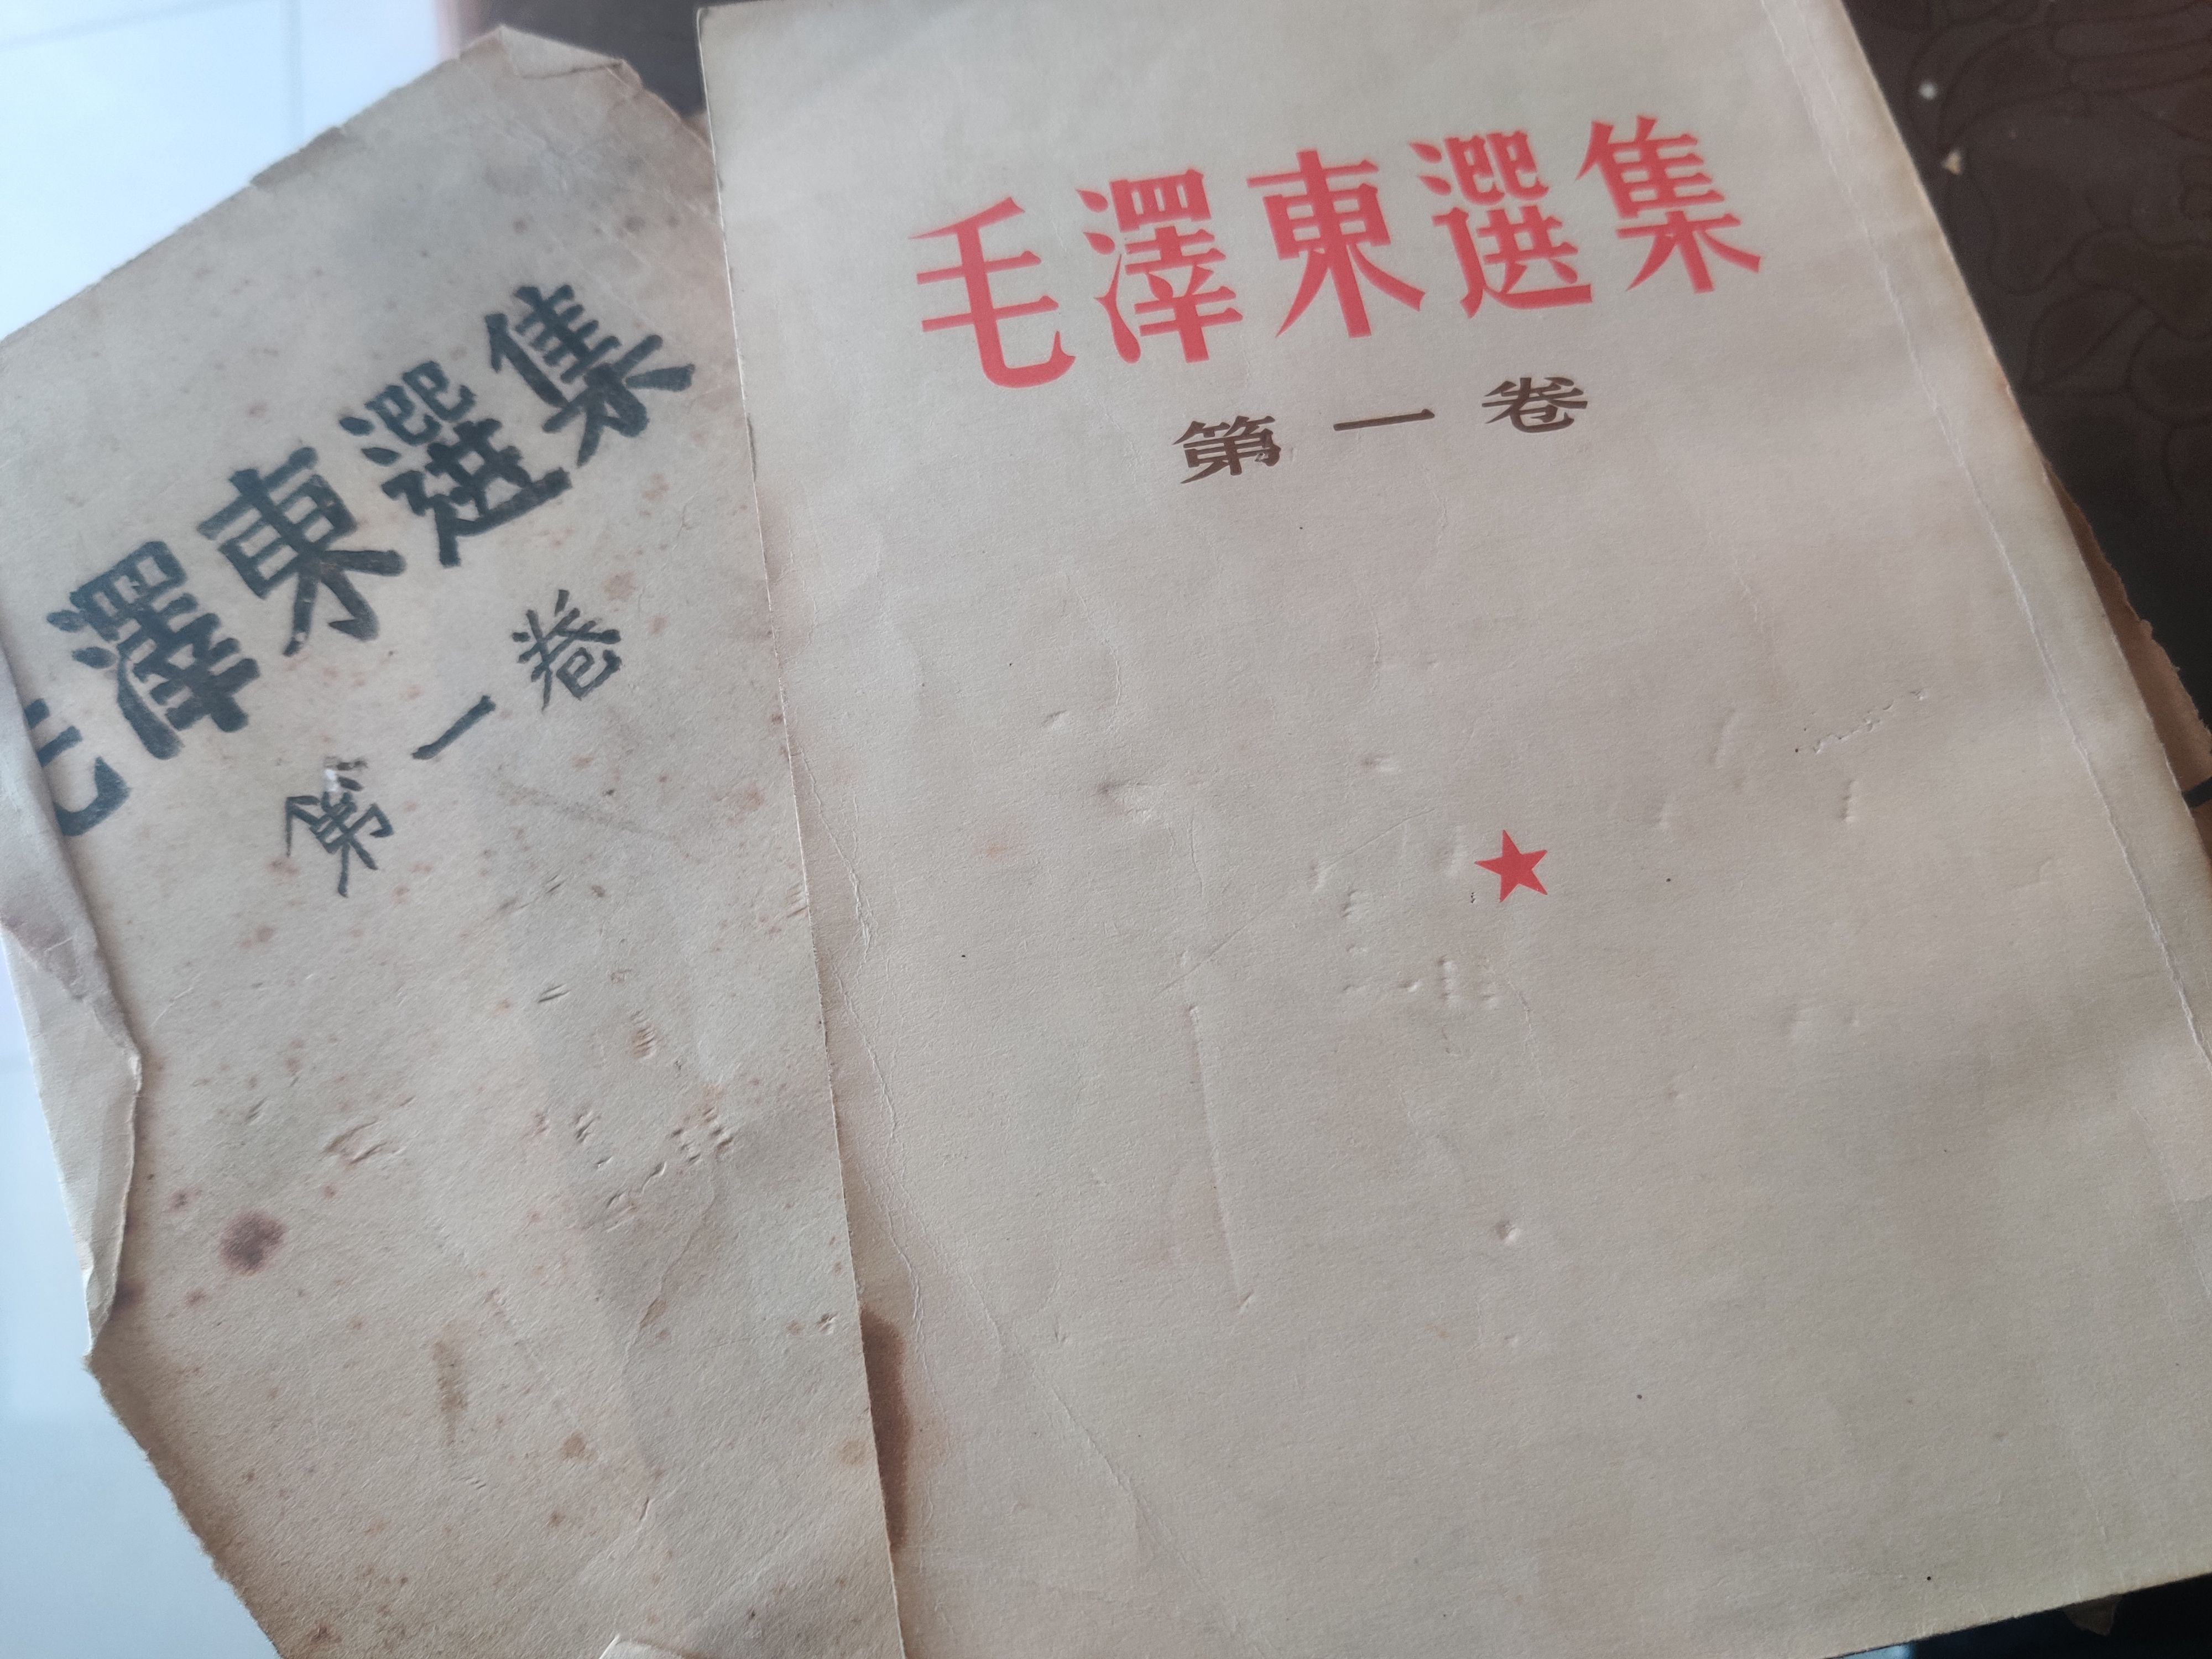 毛澤東選集
第一卷
毛澤東選集
第一卷